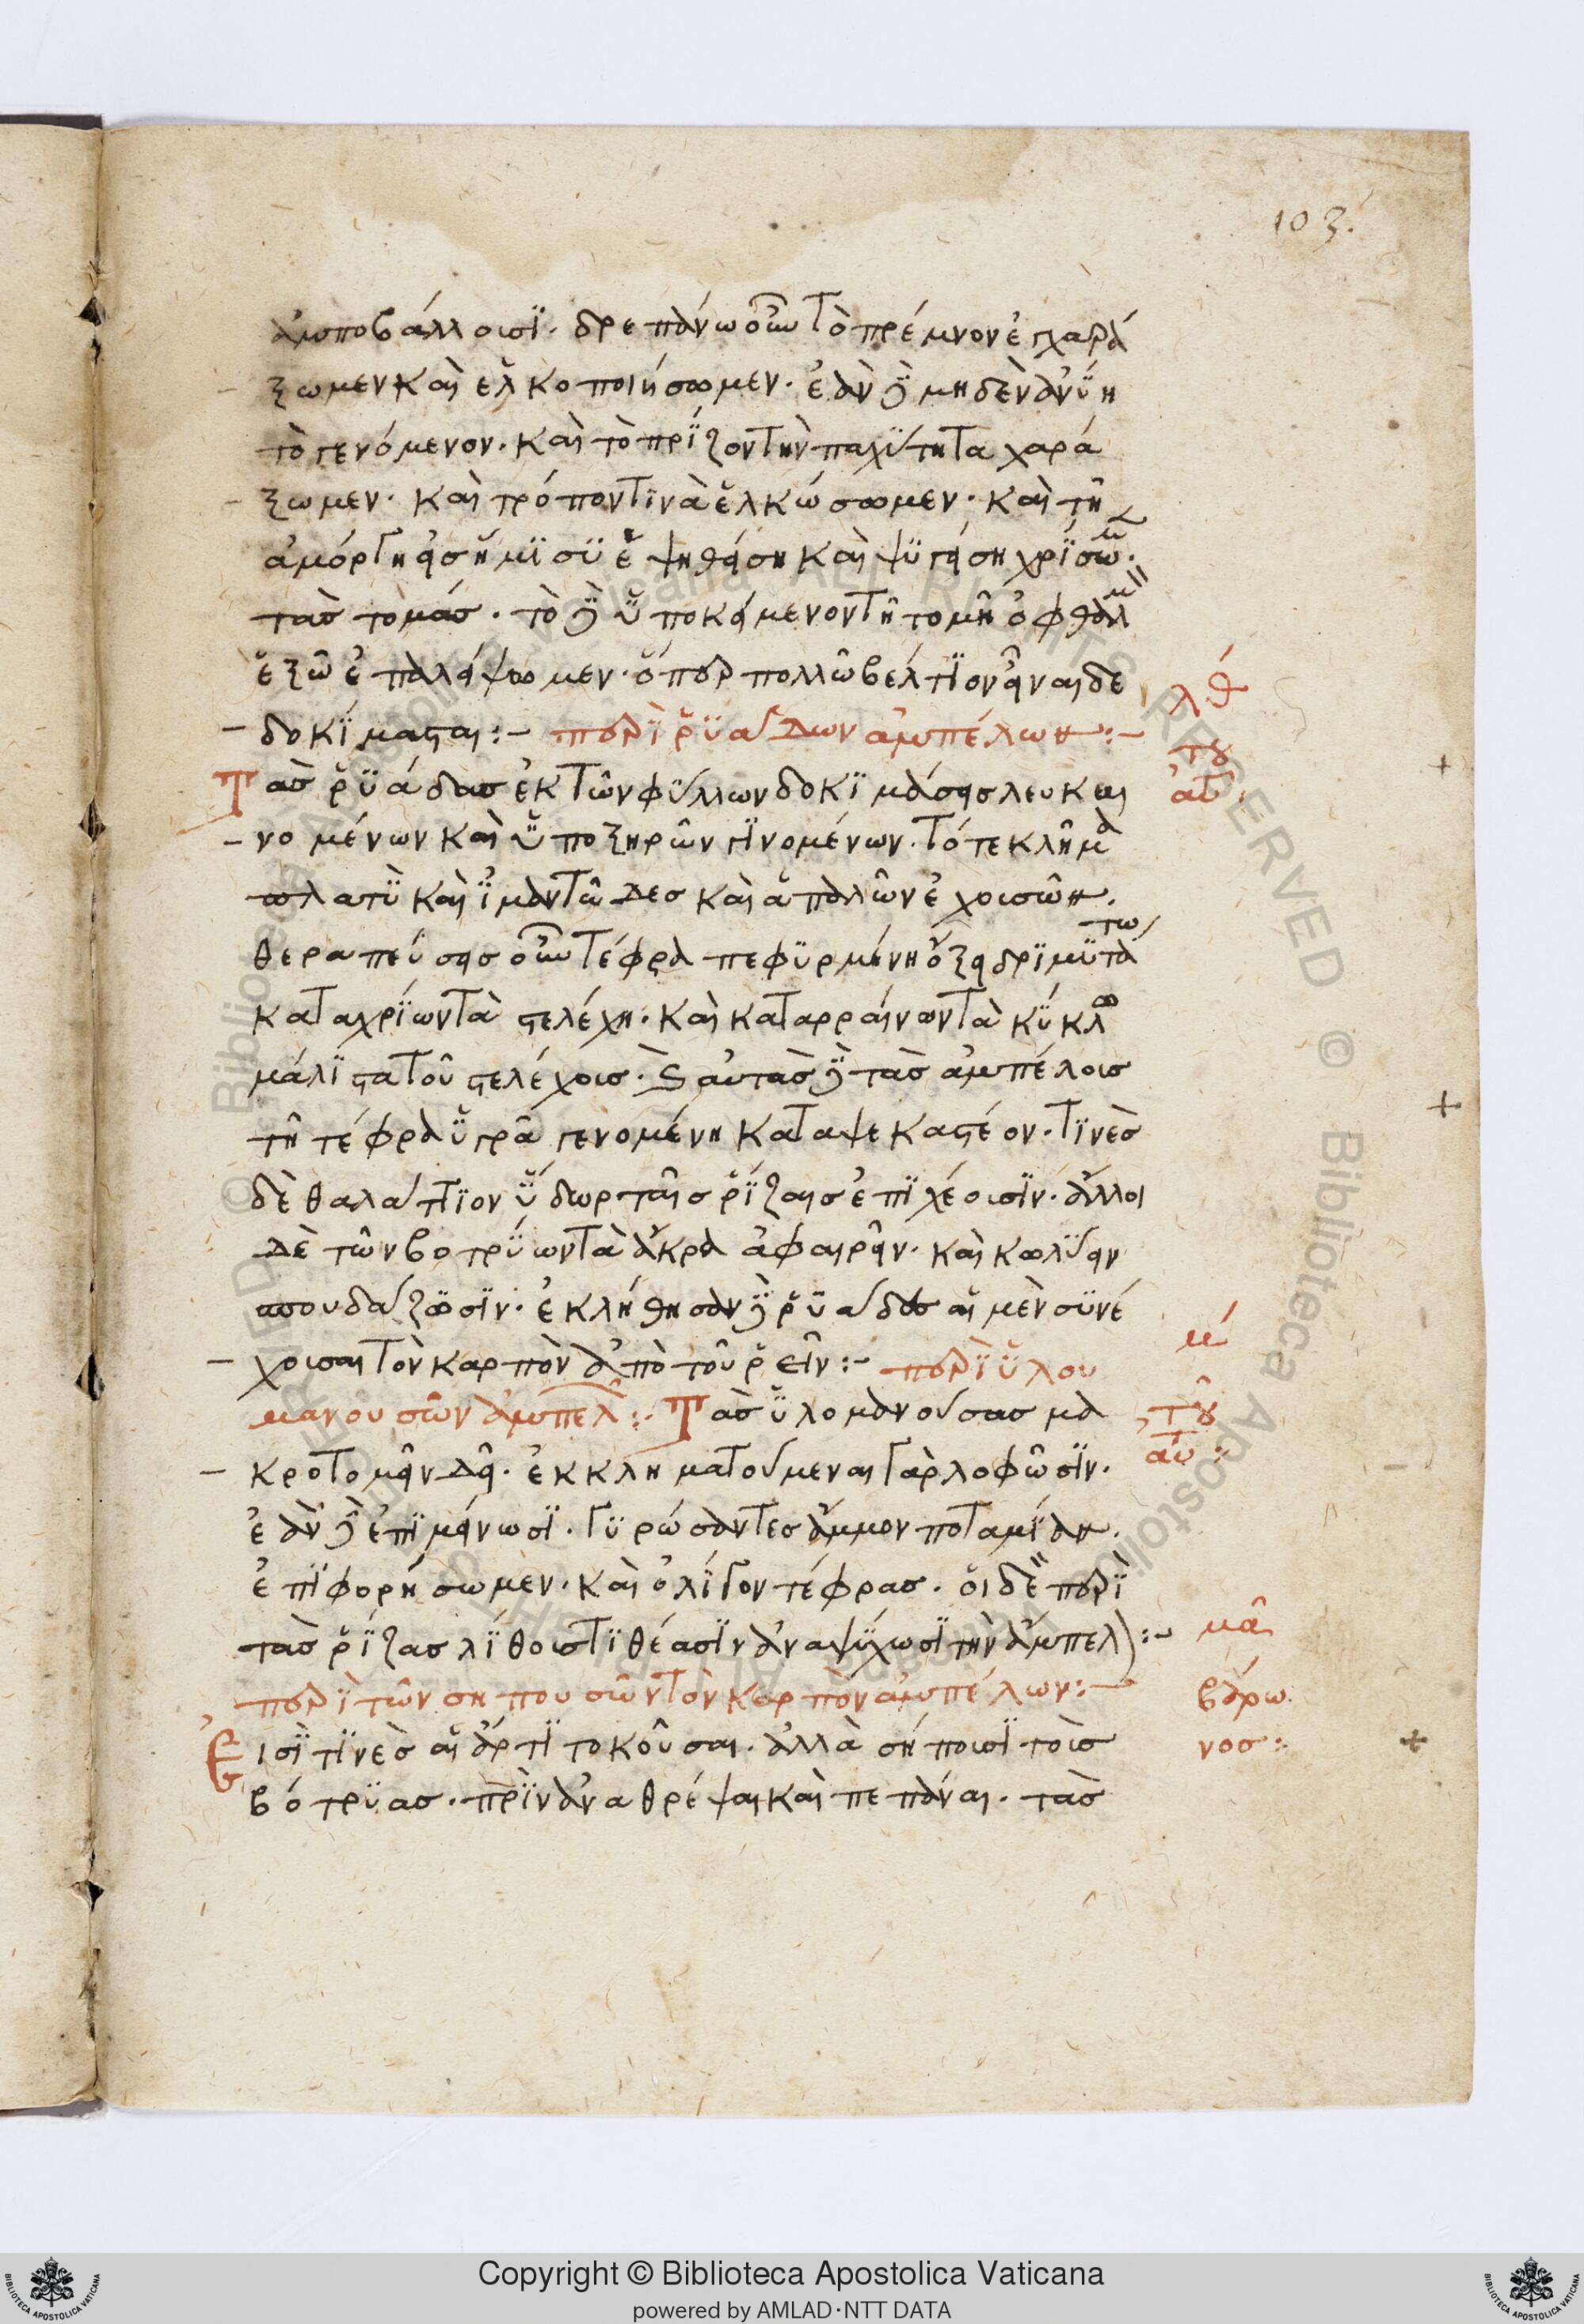 103.
ἀποβάλλουσϊ. δρεπάνω οὖν τὸ πρέμνον ἐγχαρά
ξωμεν καὶ ἑλκοποιήσωμεν. ἐὰν δὲ μηδὲν ἀνΰη
τὸ γενόμενον. καὶ τὸ πρΐζον τὴν παχΰτητα χαρά
ξωμεν. καὶ τρόπον τϊνὰ ἑλκώσωμεν. καὶ τῆ
ἀμόργη εἰς ἥμϊσϋ ἑψηθείση καὶ ψϋγείση χρΐσωμεν
τὰς τομάς. τὸ δὲ ὑποκείμενον τῆ τομῆ ὀφθαλμ
ἔξω ἐπαλείψωμεν. ὅπερ πολλῶ βέλτϊον εἶναι δε
λθ
δοκΐμασται:- περὶ ῥϋάδων ἀμπέλων:-
τοῦ
Τὰς ῥϋάδας ἐκ τῶν φΰλλων δοκϊμάσεις λευκαι
αὐτ
νομένων καὶ ὑποξηρῶν γϊνομένων. τό τε κλῆμα
πλατὺ καὶ ἱμαντῶδες καὶ ἁπαλὸν ἐχουσῶν.
θεραπεύσεις οὖν τέφρα πεφϋρμένη ὄξει δρϊμϋτάτω
καταχρΐων τὰ στελέχη. καὶ καταρραίνων τὰ κΰκλω
μάλϊστα τοῦ στελέχους. καὶ αὐτὰς δὲ τὰς ἀμπέλους
τῆ τέφρα ὑγρᾶ γενομένη καταψεκαστέον. τϊνὲς
δὲ θαλάττϊον ὕδωρ ταῖς ῥΐζαις ἐπϊχέουσϊν. ἄλλοι
δὲ τῶν βοτρΰων τὰ ἄκρα ἀφαιρεῖν. καὶ κωλΰειν
σπουδάζωσϊν. ἐκλήθησαν δὲ ῥϋάδες αἱ μὲν σϋνέ
μ
χουσαι τὸν καρπὸν ἀπὸ τοῦ ῥεῖν:- περὶ ὑλου
μανουσῶν ἀμπελ:- Τὰς ὑλομανούσας μα
τοῦ
κροτομεῖν δεῖ. ἐκκληματούμεναι γὰρ λοφῶσϊν.
αὐ:
ἐὰν δὲ ἐπϊμείνωσϊ. γϋρώσαντες ἄμμον ποταμΐαν.
ἐπϊφορήσωμεν. καὶ ὀλΐγον τέφρας. οἱ δὲ περὶ
τὰς ῥΐζας λΐθους τϊθέασϊν ἀναψΰχωσϊ τὴν ἄμπελ:-
μα
περὶ τῶν σηπουσῶν τὸν καρπὸν ἀμπέλων:-
βάρω
Εἰσῒ τϊνὲς αἱ ἄρτϊ τοκοῦσαι. ἀλλὰ σήπουσϊ τοὺς
νος:
βότρϋας. πρῒν ἀναθρέψαι καὶ πεπᾶναι. τὰς
Copyright © Biblioteca Apostolica Vaticana
powered by AMLAD·NTT DATA